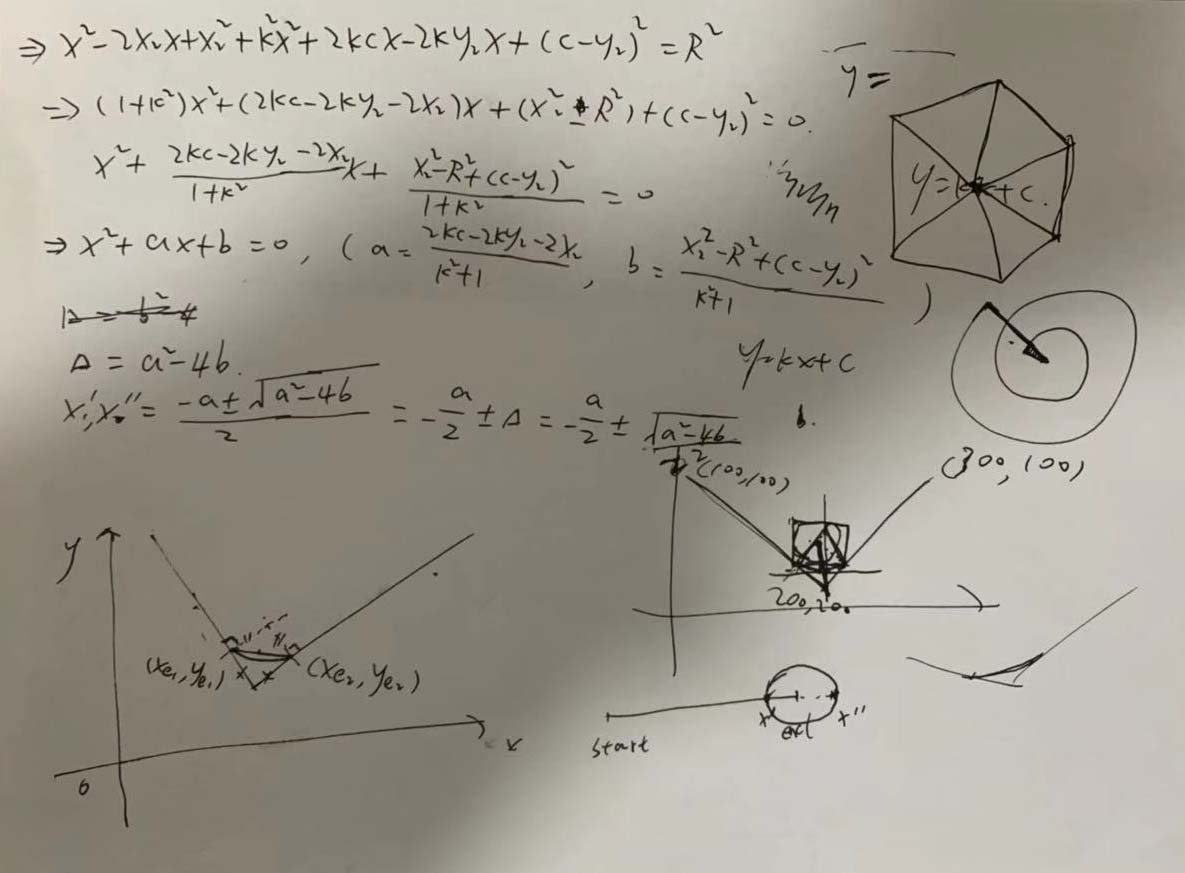 ⇒ x²-2x₂x+x₂²+k²x²+2kcx-2ky₂x+(c-y₂)²=R²
⇒ (1+k²)x²+(2kc-2ky₂-2x₂)x+(x₂²-R²)+(c-y₂)²=0.
y=
x²+ (2kc-2ky₂-2x₂)/(1+k²) x+ (x₂²-R²+(c-y₂)²)/(1+k²) =0
y=kx+c.
⇒ x²+ax+b=0, (a= (2kc-2ky₂-2x₂)/(k²+1), b= (x₂²-R²+(c-y₂)²)/(k²+1))
Δ=a²-4b.
y=kx+c
x',x''= (-a±√(a²-4b))/2 = -a/2 ± Δ = -a/2 ± √(a²-4b)/2
(100,100)
(300,100)
y
200,20.
(xe₁,ye₁)
(xe₂,ye₂)
x' x''
start
x
0